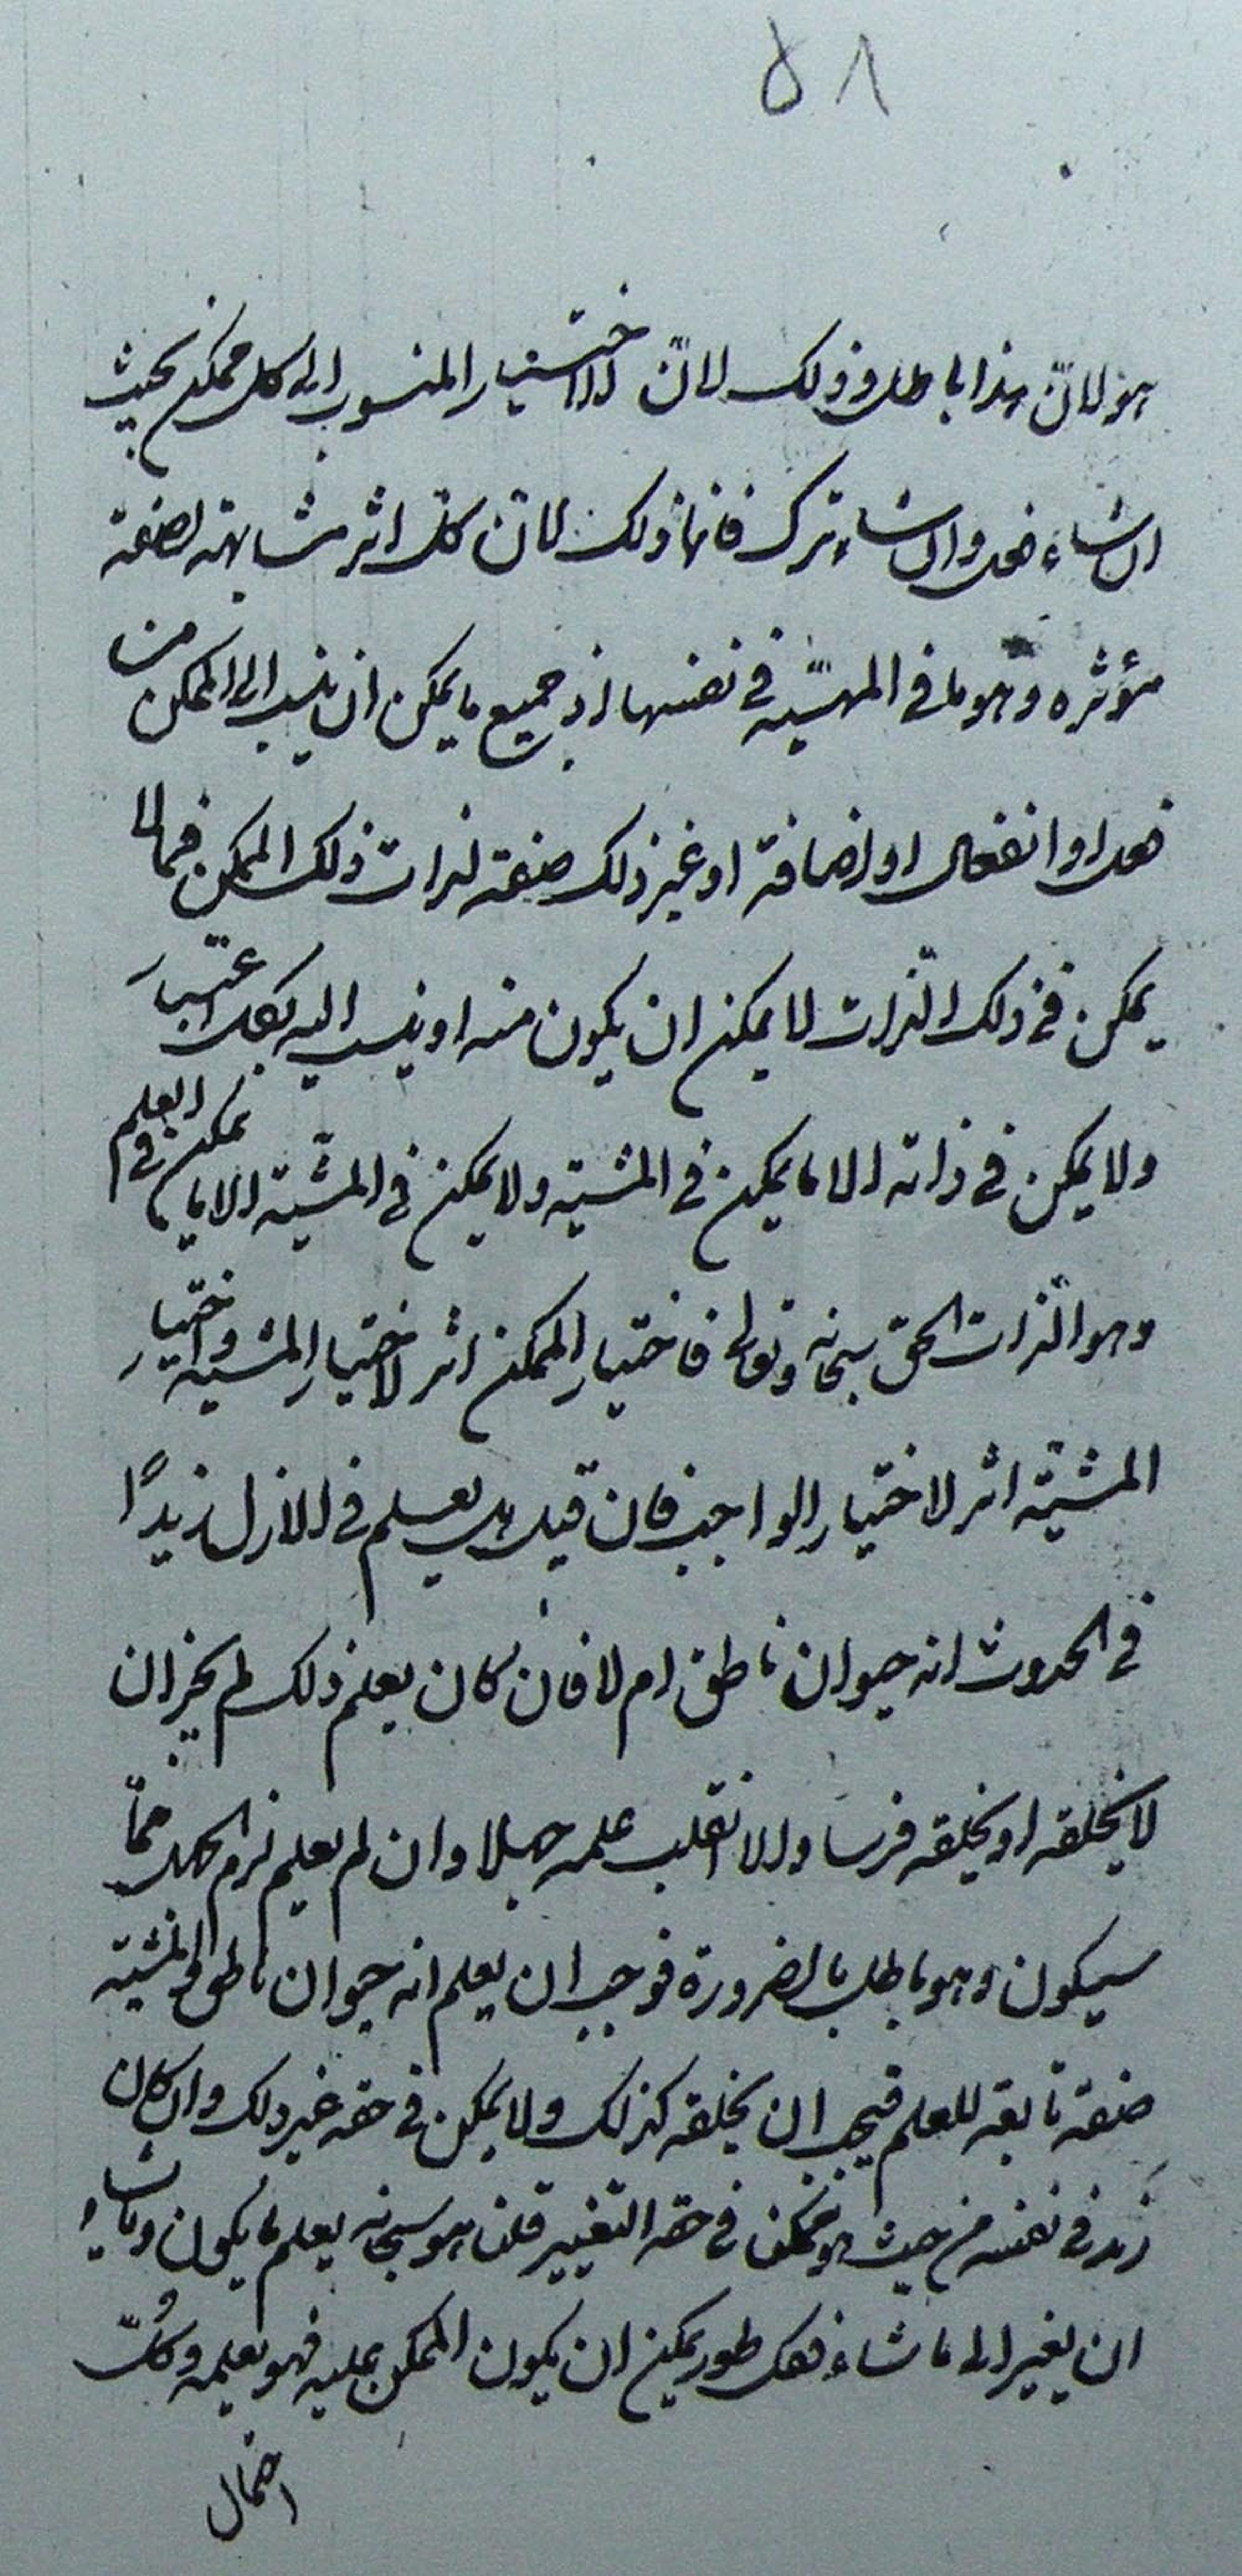 ٥٨
هو لانّ هذا باطل وذلك لانّ الاختيار المنسوب الى كل ممكن بحيث
ان شاء فعل وان شاء ترك فانما ذلك لانّ كل اثر مشابهته لصفة
مؤثره وهو ما في المهيّة في نفسها اذ جميع ما يمكن ان ينسب الى الممكن من
فعل او انفعال او اضافة او غير ذلك صفة لذات ذلك الممكن فما لا
يمكن في ذلك الذات لا يمكن ان يكون منه او ينسب اليه بكل اعتبار
ولا يمكن في ذاته الا ما يمكن في المشيّة ولا يمكن في المشيّة الا ما يمكن في العلم
وهو الذات الحق سبحانه وتعالى فاختيار الممكن اثر لاختيار المشيّة واختيار
المشيّة اثر لاختيار الواجب فان قيل هل يعلم في الازل زيدًا
في الحدوث انه حيوان ناطق ام لا فان كان يعلم ذلك لم يجز ان
لا يخلقه او يخلقه فرسا والا انقلب علمه جهلا وان لم يعلم لزم الجهل عمّا
سيكون وهو باطل بالضرورة فوجب ان يعلم انه حيوان ناطق والمشيّة
صفة تابعة للعلم فيجب ان يخلقه كذلك ولا يمكن في حقه غير ذلك وان كان
زيد في نفسه من حيث هو ممكن في حقه التغيير قلنا هو سبحانه يعلم ما يكون وما يشاء
ان يغير الى ما شاء فكل طور يمكن ان يكون الممكن عليه فهو يعلمه وكلّ
احتمال